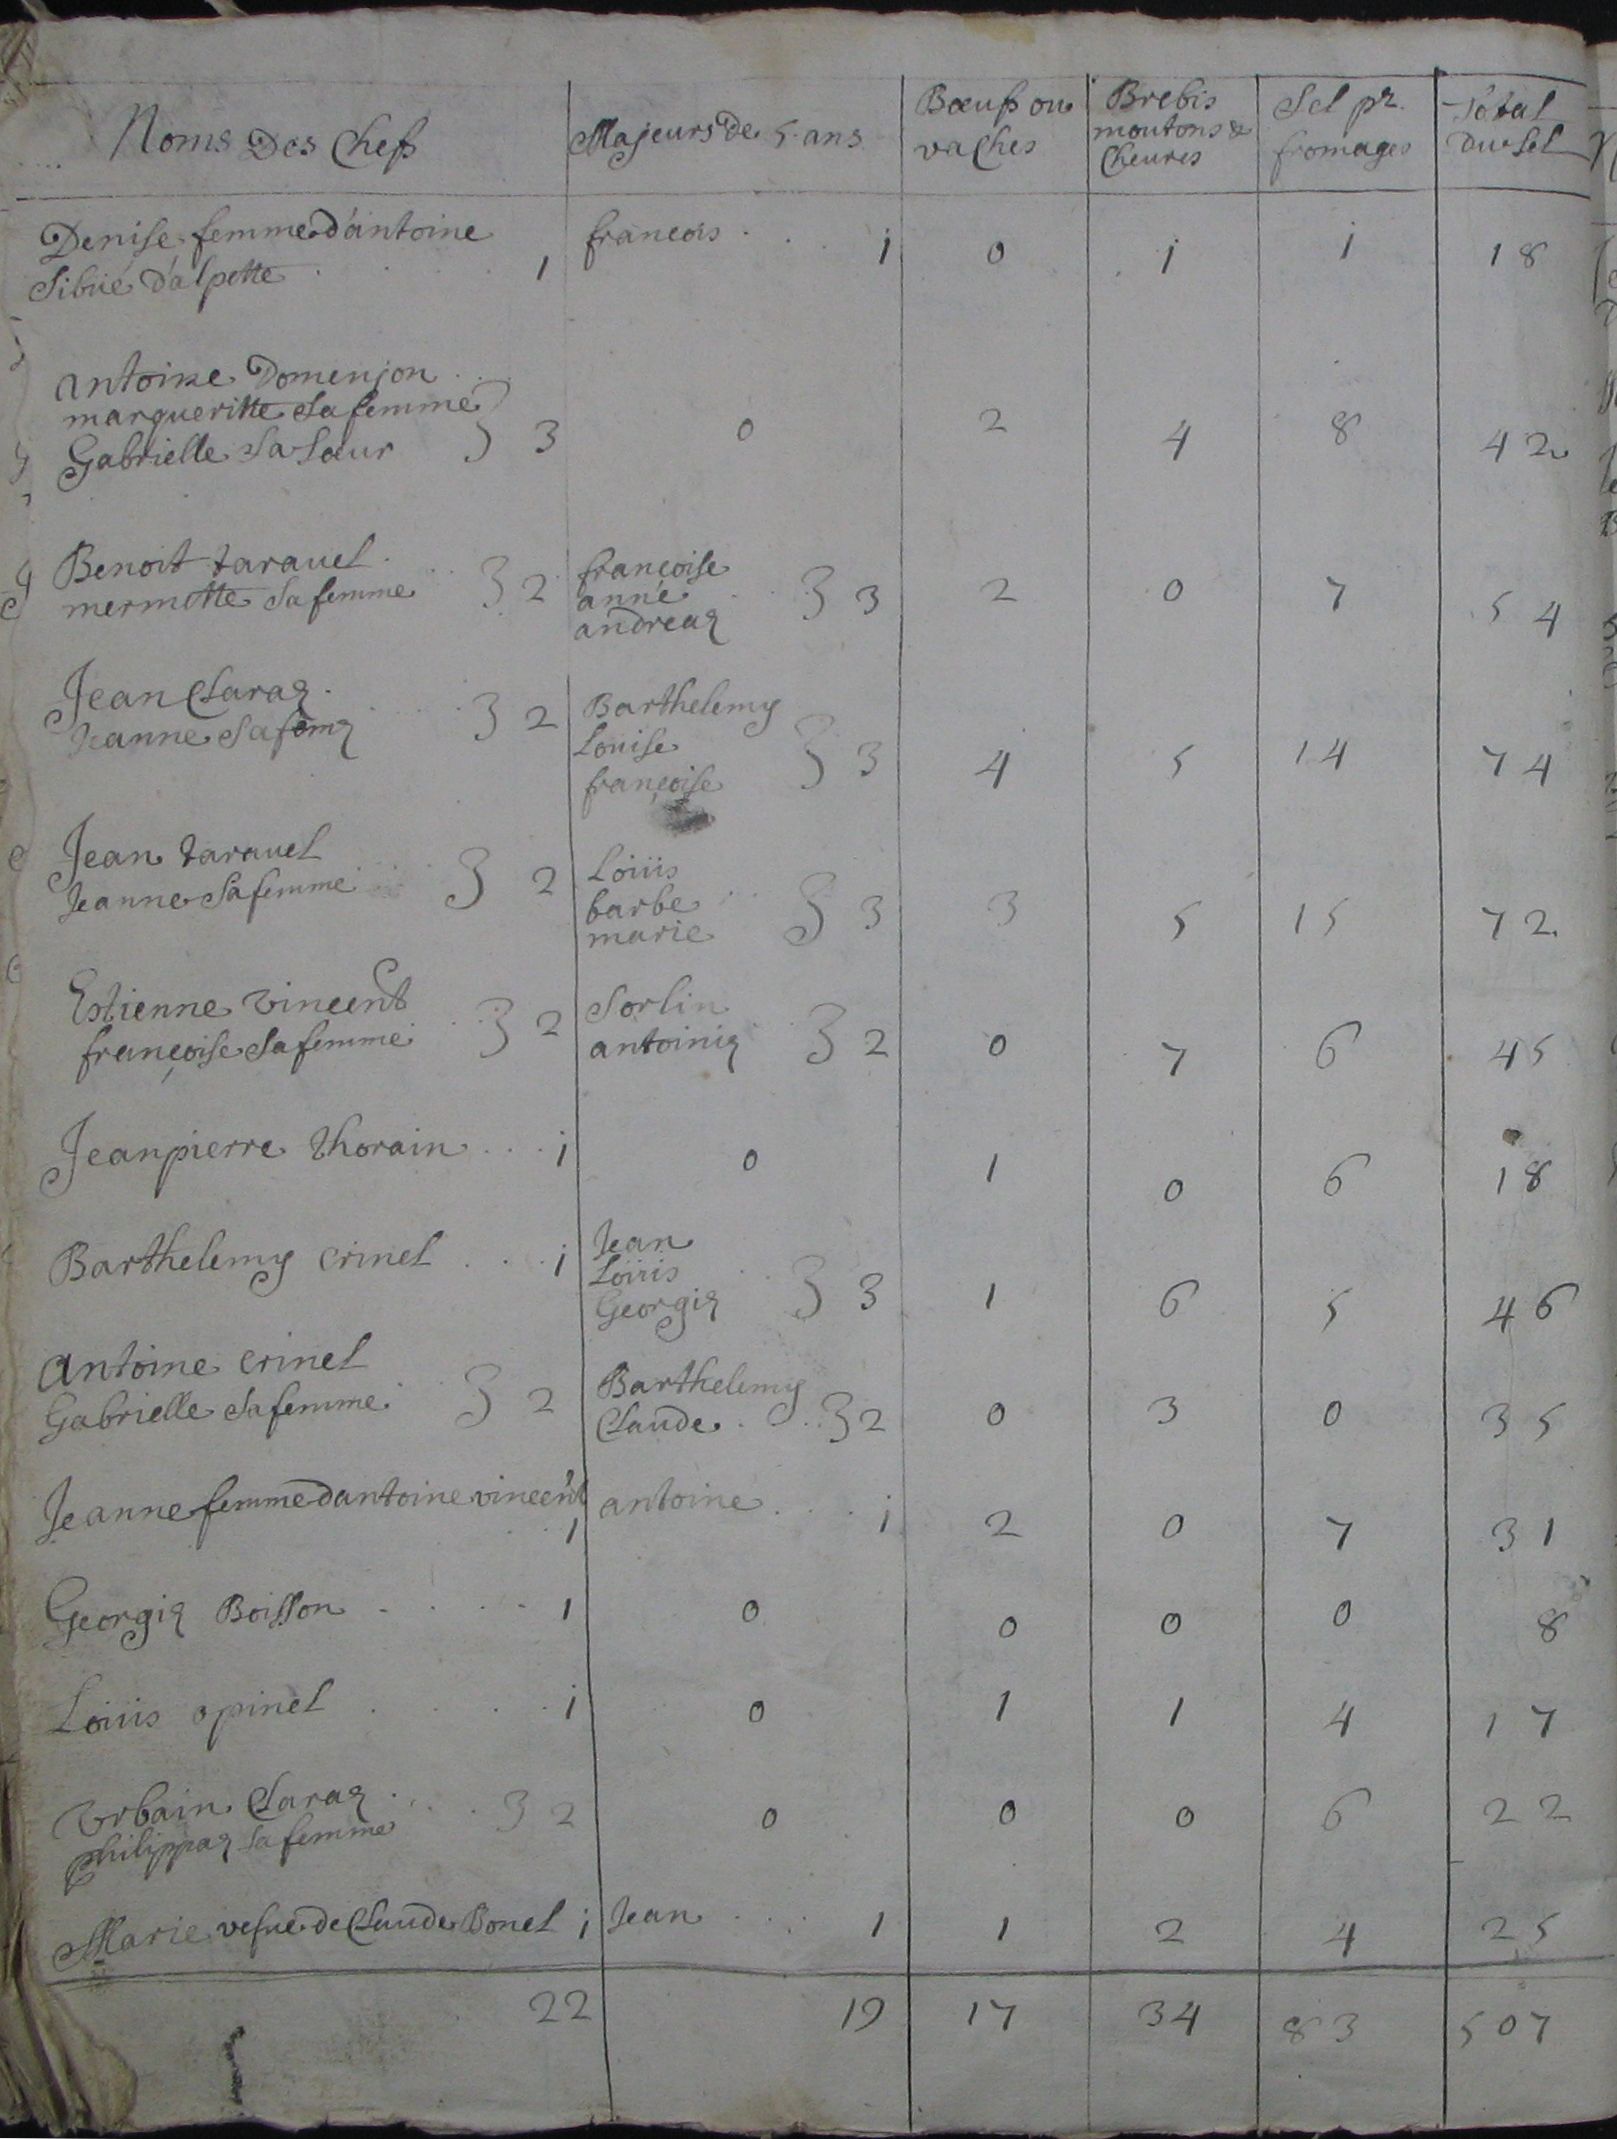 Noms Des Chefs | Majeurs De 5 ans | Bœufs ou vaches | Brebis moutons & cheures | Sel pr. fromages | Total Du Sel
Denise femme d'antoine | francois . . . 1 | 0 | 1 | 1 | 18
Sibué d'alpette . . . 1
antoine Domenjon
margueritte sa femme
Gabrielle sa sœur } 3 | 0 | 2 | 4 | 8 | 42
Benoit taravel | françoise
mermette sa femme } 2 | anne } 3 | 2 | 0 | 7 | 54
andreaz
Jean Claraz | Barthelemy
Jeanne sa femz } 2 | Louise } 3 | 4 | 5 | 14 | 74
françoise
Jean taravel | Loüis
Jeanne sa femme } 2 | barbe } 3 | 3 | 5 | 15 | 72
marie
Estienne vincent | Sorlin
françoise sa femme } 2 | antoiniz } 2 | 0 | 7 | 6 | 45
Jeanpierre thorain . . . 1 | 0 | 1 | 0 | 6 | 18
Jean
Barthelemy crinel . . . 1 | Loüis
Georgiz } 3 | 1 | 6 | 5 | 46
antoine crinel | Barthelemy
Gabrielle sa femme } 2 | Claude } 2 | 0 | 3 | 0 | 35
Jeanne femme d'antoine vincent 1 | antoine . . . 1 | 2 | 0 | 7 | 31
Georgiz Boisson . . . . 1 | 0 | 0 | 0 | 0 | 8
Loüis opinel . . . . 1 | 0 | 1 | 1 | 4 | 17
Vrbain Claraz
philippaz sa femme } 2 | 0 | 0 | 0 | 6 | 22
Marie vefue de Claude Bonel 1 | Jean . . . 1 | 1 | 2 | 4 | 25
22 | 19 | 17 | 34 | 83 | 507